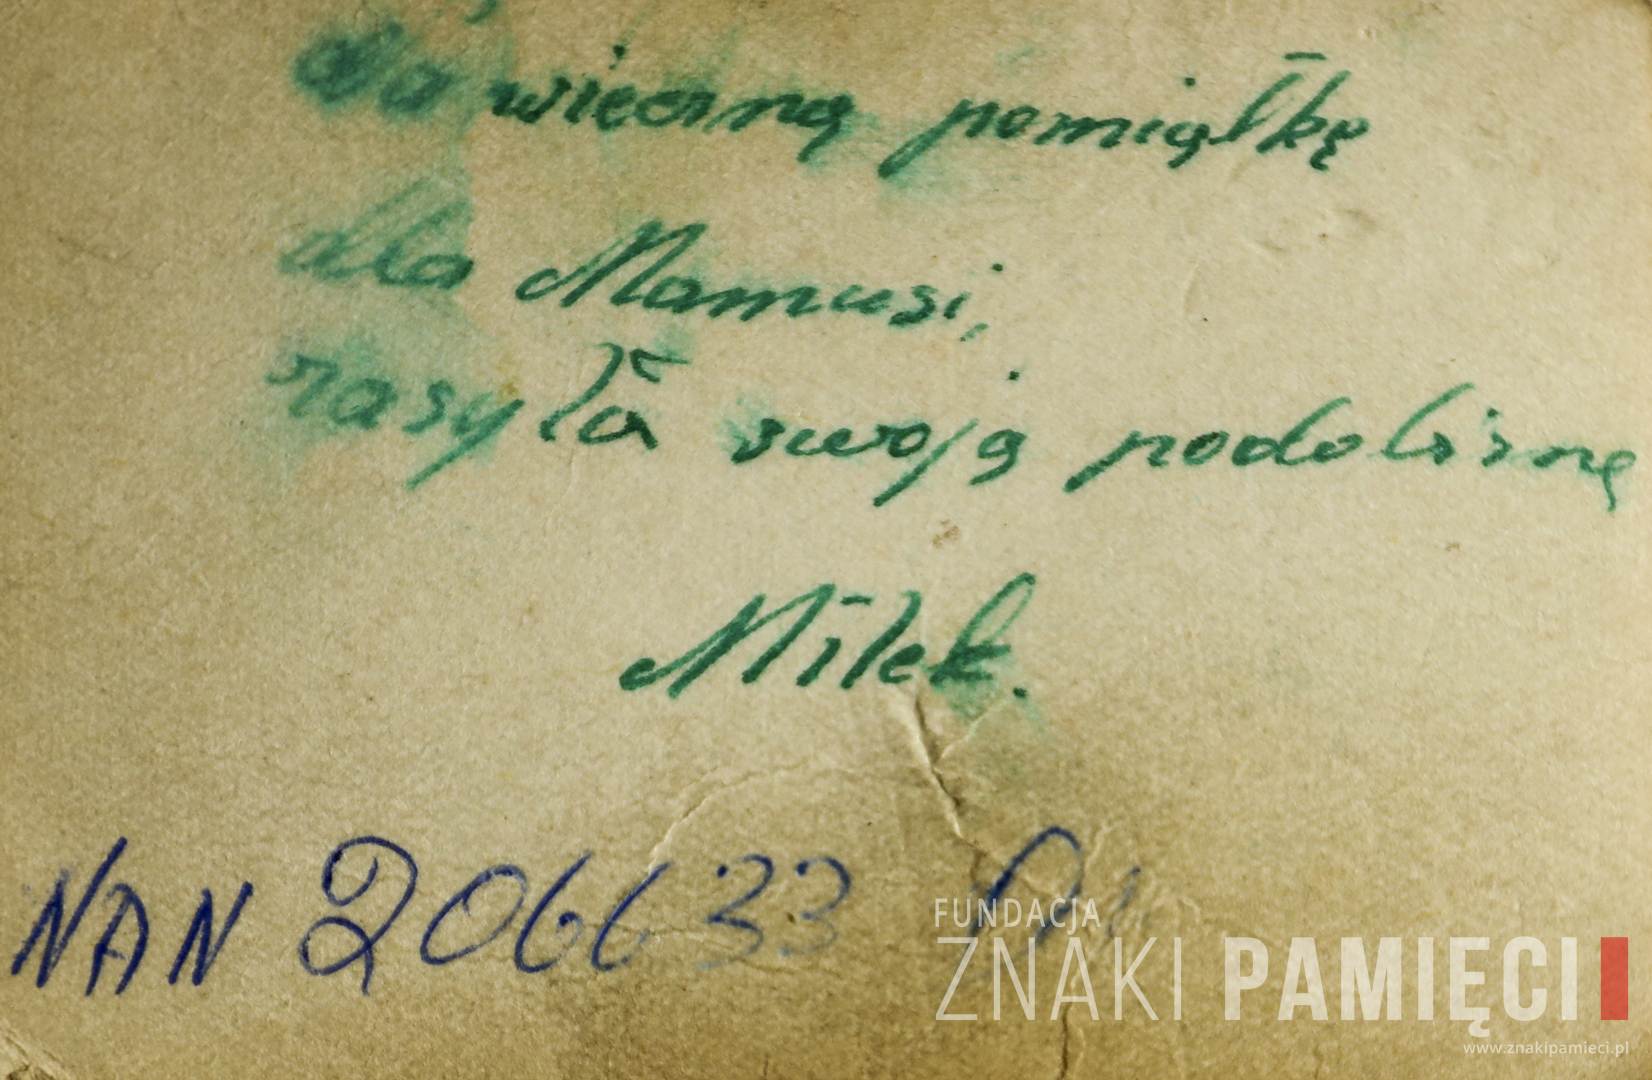 Na wieczną pomiątkę
dla Mamusi,
zasyła swoją podobiznę
Milek.
NAN 206633
FUNDACJA
ZNAKI PAMIĘCI
www.znakipamieci.pl